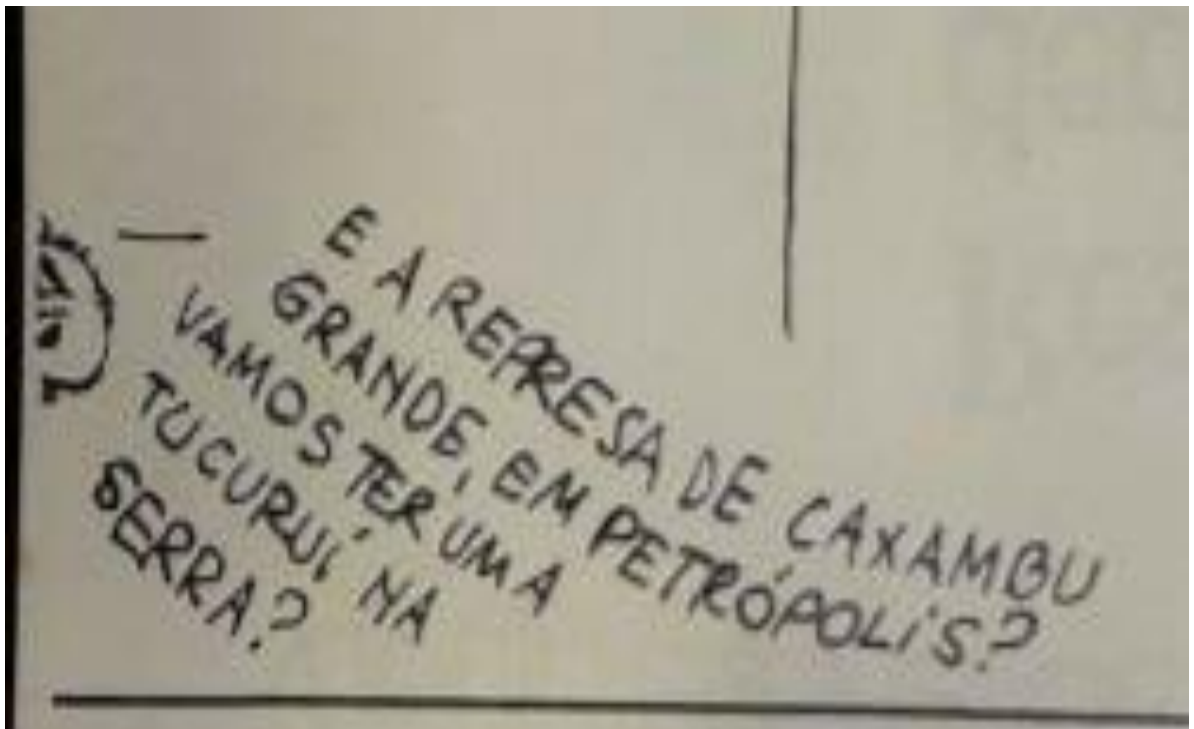 — E A REPRESA DE CAXAMBU
GRANDE, EM PETRÓPOLIS?
VAMOS TER UMA
TUCURUÍ NA
SERRA?